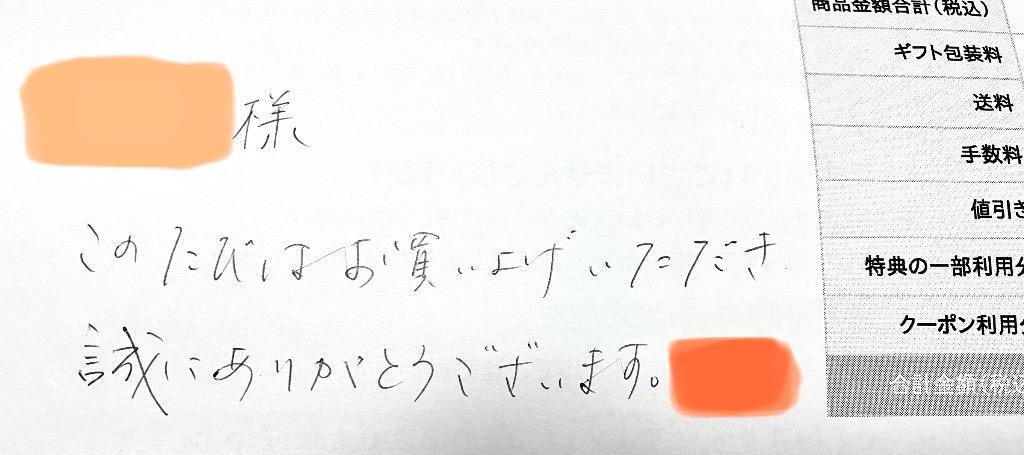 様
このたびはお買い上げいただき
誠にありがとうございます。
商品金額合計(税込)
ギフト包装料
送料
手数料
値引き
特典の一部利用分
クーポン利用分
合計金額(税込